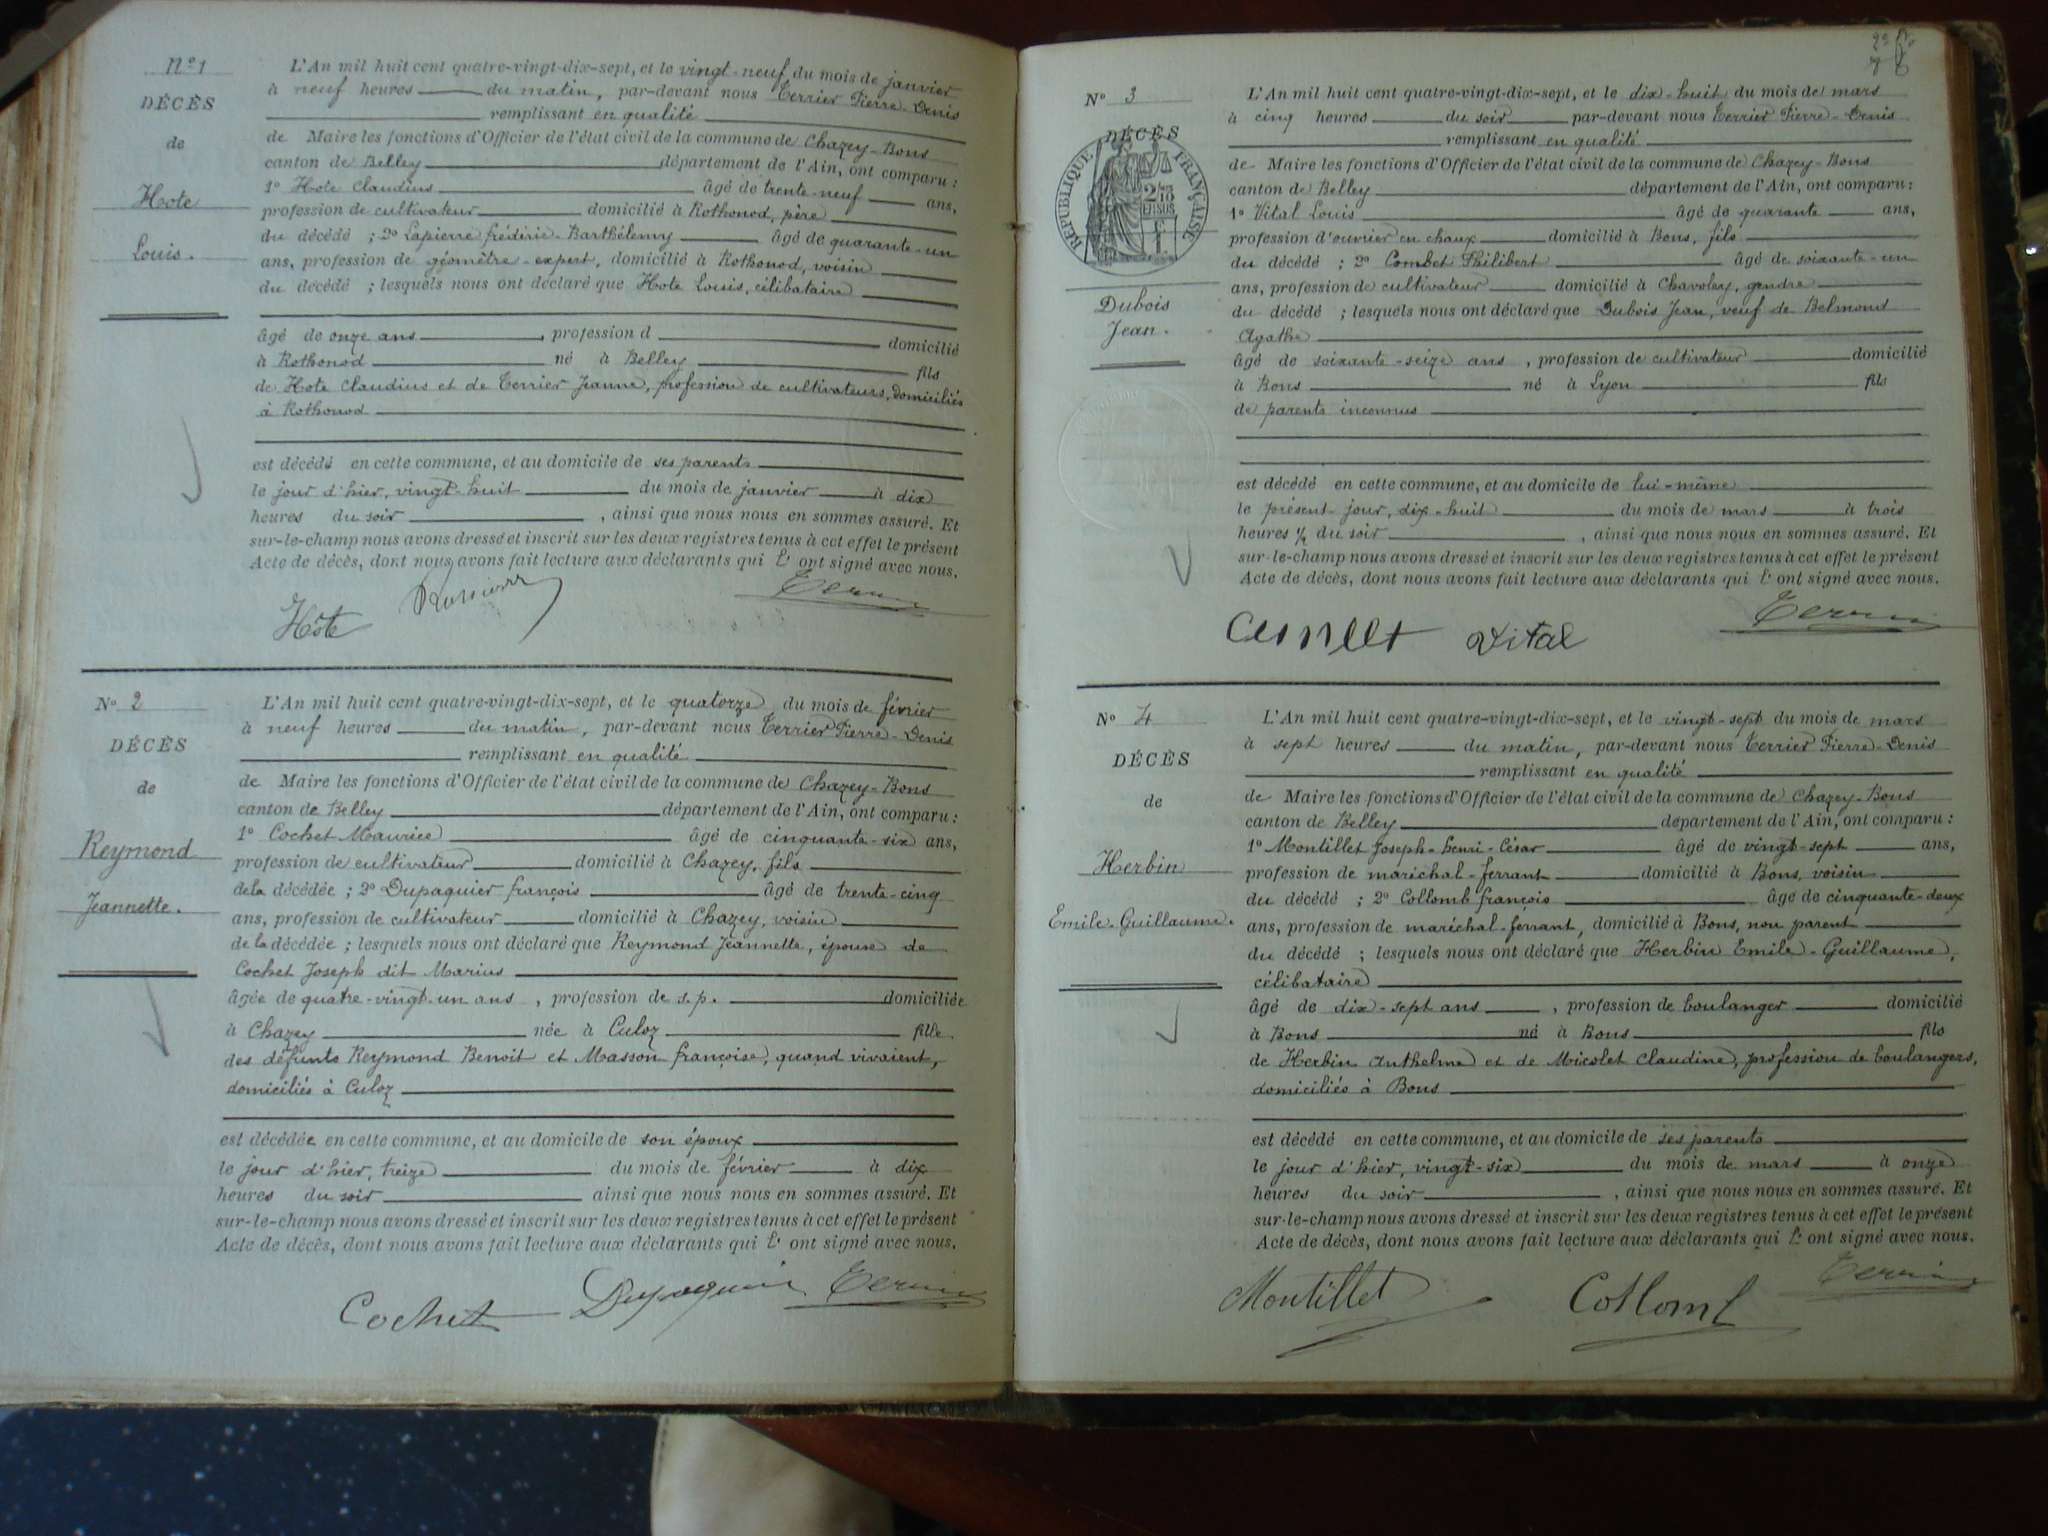 N° 1
DÉCÈS
de
Hote
Louis.
L'An mil huit cent quatre-vingt-dix-sept, et le vingt-neuf du mois de janvier
à neuf heures du matin, par-devant nous Terrier Pierre-Denis
remplissant en qualité
de Maire les fonctions d'Officier de l'état civil de la commune de Chazey-Bons
canton de Belley département de l'Ain, ont comparu :
1° Hote Claudius âgé de trente-neuf ans,
profession de cultivateur domicilié à Rothonod, père
du décédé ; 2° Lapierre frédéric-Barthélemy âgé de quarante-un
ans, profession de géomètre-expert, domicilié à Rothonod, voisin
du décédé ; lesquels nous ont déclaré que Hote Louis, célibataire
âgé de onze ans, profession d domicilié
à Rothonod né à Belley fils
de Hote Claudius et de Terrier Jeanne, profession de cultivateurs, domiciliés
à Rothonod
est décédé en cette commune, et au domicile de ses parents
le jour d'hier, vingt-huit du mois de janvier à dix
heures du soir, ainsi que nous nous en sommes assuré. Et
sur-le-champ nous avons dressé et inscrit sur les deux registres tenus à cet effet le présent
Acte de décès, dont nous avons fait lecture aux déclarants qui l' ont signé avec nous.
Hôte
N° 2
DÉCÈS
de
Reymond
Jeannette.
L'An mil huit cent quatre-vingt-dix-sept, et le quatorze du mois de février
à neuf heures du matin, par-devant nous Terrier Pierre-Denis
remplissant en qualité
de Maire les fonctions d'Officier de l'état civil de la commune de Chazey-Bons
canton de Belley département de l'Ain, ont comparu :
1° Cochet Maurice âgé de cinquante-six ans,
profession de cultivateur domicilié à Chazey, fils
de la décédée ; 2° Dupaquier françois âgé de trente-cinq
ans, profession de cultivateur domicilié à Chazey, voisin
de la décédée ; lesquels nous ont déclaré que Reymond Jeannette, épouse de
Cochet Joseph dit Marius
âgée de quatre-vingt-un ans, profession de s.p. domiciliée
à Chazey née à Culoz fille
des défunts Reymond Benoit et Masson françoise, quand vivaient,
domiciliés à Culoz
est décédée en cette commune, et au domicile de son époux
le jour d'hier, treize du mois de février à dix
heures du soir ainsi que nous nous en sommes assuré. Et
sur-le-champ nous avons dressé et inscrit sur les deux registres tenus à cet effet le présent
Acte de décès, dont nous avons fait lecture aux déclarants qui l' ont signé avec nous.
Cochet Dupaquier Terrier
N° 3
DÉCÈS
RÉPUBLIQUE FRANÇAISE
Dubois
Jean.
L'An mil huit cent quatre-vingt-dix-sept, et le dix-huit du mois de mars
à cinq heures du soir par-devant nous Terrier Pierre-Denis
remplissant en qualité
de Maire les fonctions d'Officier de l'état civil de la commune de Chazey-Bons
canton de Belley département de l'Ain, ont comparu :
1° Vital Louis âgé de quarante ans,
profession d'ouvrier en chaux domicilié à Bons, fils
du décédé ; 2° Combet Philibert âgé de soixante-un
ans, profession de cultivateur domicilié à Chavoley, gendre
du décédé ; lesquels nous ont déclaré que Dubois Jean, veuf de Belmond
Agathe
âgé de soixante-seize ans, profession de cultivateur domicilié
à Bons né à Lyon fils
de parents inconnus
est décédé en cette commune, et au domicile de lui-même
le présent jour, dix-huit du mois de mars à trois
heures ½ du soir, ainsi que nous nous en sommes assuré. Et
sur-le-champ nous avons dressé et inscrit sur les deux registres tenus à cet effet le présent
Acte de décès, dont nous avons fait lecture aux déclarants qui l' ont signé avec nous.
Vital Terrier
N° 4
DÉCÈS
de
Herbin
Emile-Guillaume.
L'An mil huit cent quatre-vingt-dix-sept, et le vingt-sept du mois de mars
à sept heures du matin, par-devant nous Terrier Pierre-Denis
remplissant en qualité
de Maire les fonctions d'Officier de l'état civil de la commune de Chazey-Bons
canton de Belley département de l'Ain, ont comparu :
1° Montillet Joseph-henri-César âgé de vingt-sept ans,
profession de maréchal-ferrant domicilié à Bons, voisin
du décédé ; 2° Collomb françois âgé de cinquante-deux
ans, profession de maréchal-ferrant, domicilié à Bons, non parent
du décédé ; lesquels nous ont déclaré que Herbin Emile-Guillaume,
célibataire
âgé de dix-sept ans, profession de boulanger domicilié
à Bons né à Bons fils
de Herbin Anthelme et de Micolet Claudine, profession de boulangers,
domiciliés à Bons
est décédé en cette commune, et au domicile de ses parents
le jour d'hier, vingt-six du mois de mars à onze
heures du soir, ainsi que nous nous en sommes assuré. Et
sur-le-champ nous avons dressé et inscrit sur les deux registres tenus à cet effet le présent
Acte de décès, dont nous avons fait lecture aux déclarants qui l' ont signé avec nous.
Montillet Collomb Terrier